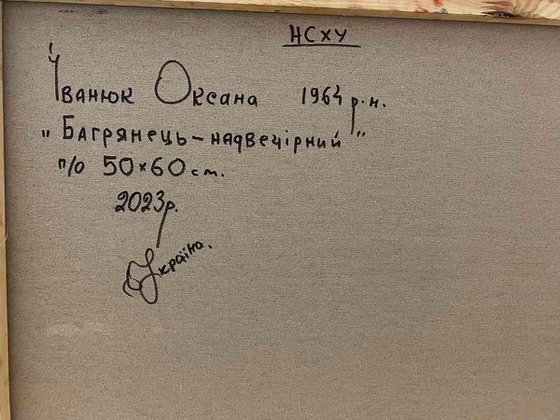 НСХУ
Іванюк Оксана 1964 р.н.
"Багрянець-надвечірний"
п/о 50×60 см.
2023р.
Україна.